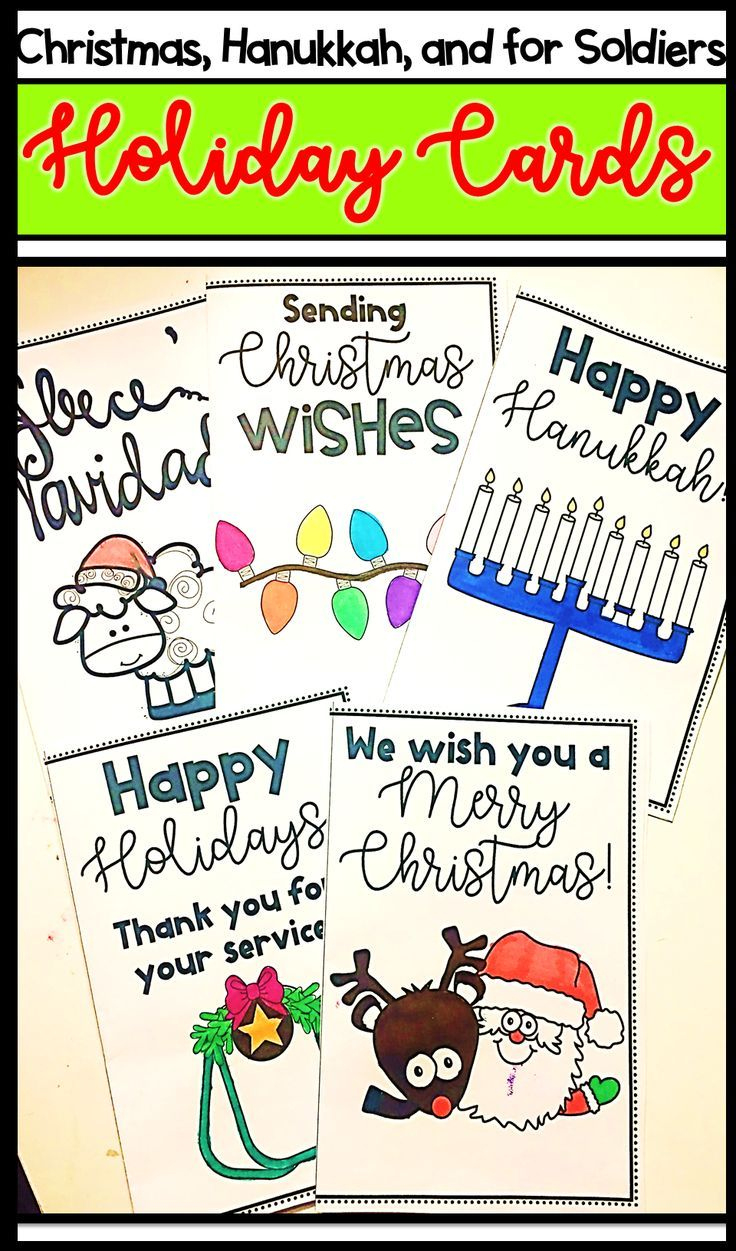 Christmas, Hanukkah, and for Soldiers
Holiday Cards
Navidad
Sending
Christmas
WISHES
Happy
Hanukkah!
Happy
Holidays
Thank you for
your service
We wish you a
Merry
Christmas!